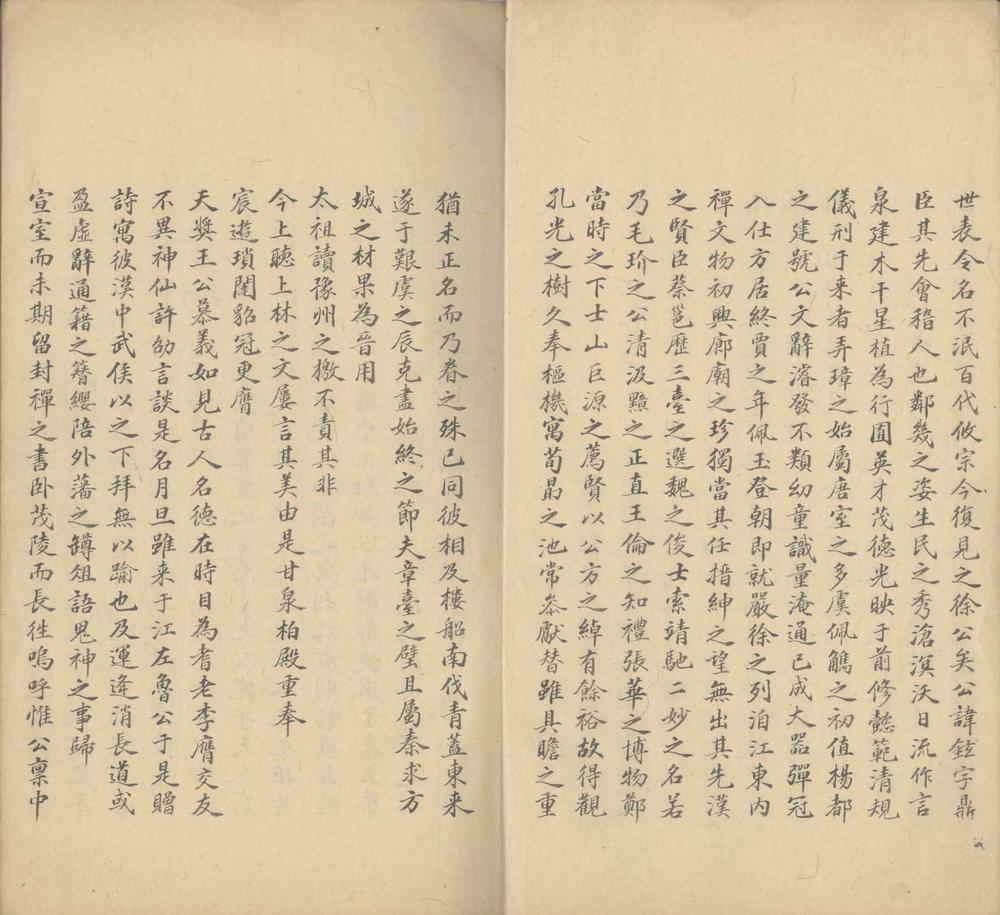 世表令名不泯百代攸宗今復見之徐公矣公諱鉉字鼎
臣其先會稽人也鄰幾之姿生民之秀滄溟沃日流作言
泉建木干星植為行囿英才茂德光映于前修懿範清規
儀刑于来者弄璋之始屬唐室之多虞佩觿之初值楊都
之建號公文辭濬發不類幼童識量淹通已成大器彈冠
入仕方居終賈之年佩玉登朝即就嚴徐之列洎江東内
禪文物初興廊廟之珍獨當其任搢紳之望無出其先漢
之賢臣蔡邕歷三臺之選魏之俊士索靖馳二妙之名若
乃毛玠之公清汲黯之正直王倫之知禮張華之博物鄭
當時之下士山巨源之薦賢以公方之綽有餘裕故得觀
孔光之樹久奉樞機寓荀勗之池常叅獻替雖具瞻之重
猶未正名而乃眷之殊已同彼相及樓船南伐青蓋東来
遂于艱虞之辰克盡始終之節夫章臺之璧且屬秦求方
城之材果為晉用
太祖讀豫州之檄不責其非
今上聽上林之文屢言其美由是甘泉柏殿重奉
宸遊瑣闈貂冠更膺
天奬王公慕義如見古人名德在時目為耆老李膺交友
不異神仙許劭言談是名月旦雖来于江左魯公于是贈
詩寓彼漢中武侯以之下拜無以踰也及運逢消長道或
盈虛辭通籍之簪纓陪外藩之罇俎語鬼神之事歸
宣室而未期留封禪之書卧茂陵而長徃嗚呼惟公禀中